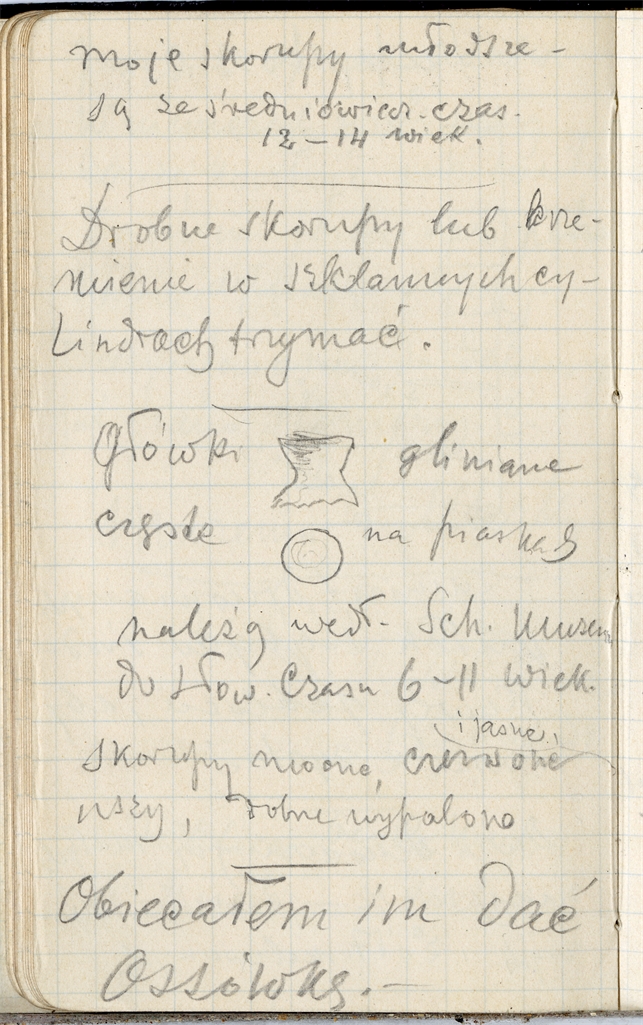 moje skorupy młodsze -
są ze średniowiecz. czas.
12 - 14 wiek.
Drobne skorupy lub krze-
mienie w szklannych cy-
lindrach trzymać.
Główki gliniane
częste na piaskach
należą wedł. Sch. Museum
do słow. czasu 6-11 wiek.
i jasne,
skorupy mocne, czerwone
uszy, dobrze wypalone
Obiecałem im dać
Ossówkę. -